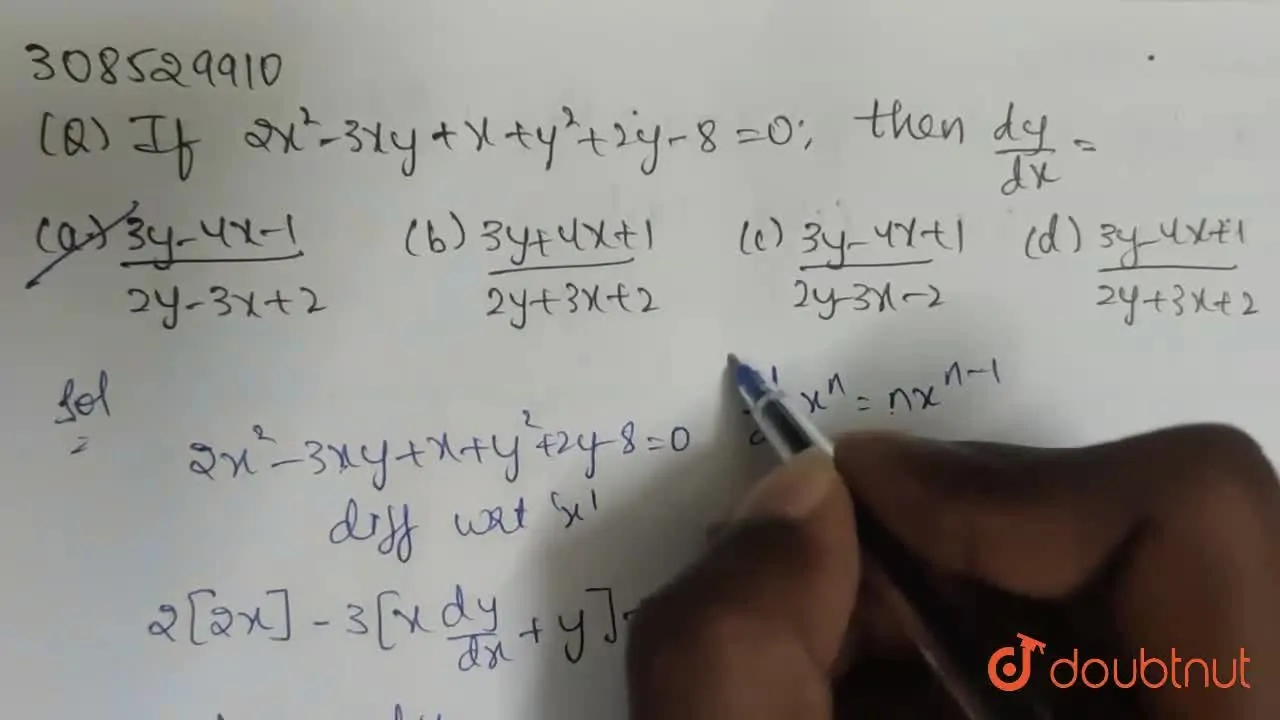 308529910
(Q) If 2x² - 3xy + x + y² + 2y - 8 = 0; then dy/dx =
(a) 3y-4x-1/2y-3x+2 (b) 3y+4x+1/2y+3x+2 (c) 3y-4x+1/2y-3x-2 (d) 3y-4x+1/2y+3x+2
Sol
xⁿ = nxⁿ⁻¹
2x² - 3xy + x + y² + 2y - 8 = 0
diff wrt 'x'
2[2x] - 3[x dy/dx + y]
doubtnut